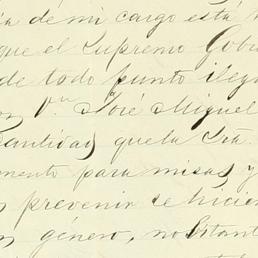 de mi cargo está
que el Supremo Gob
de todo punto ileg
José Miguel
Cantidad que la Sra.
mento para misas y
prevenir se hicie
género, no obstant